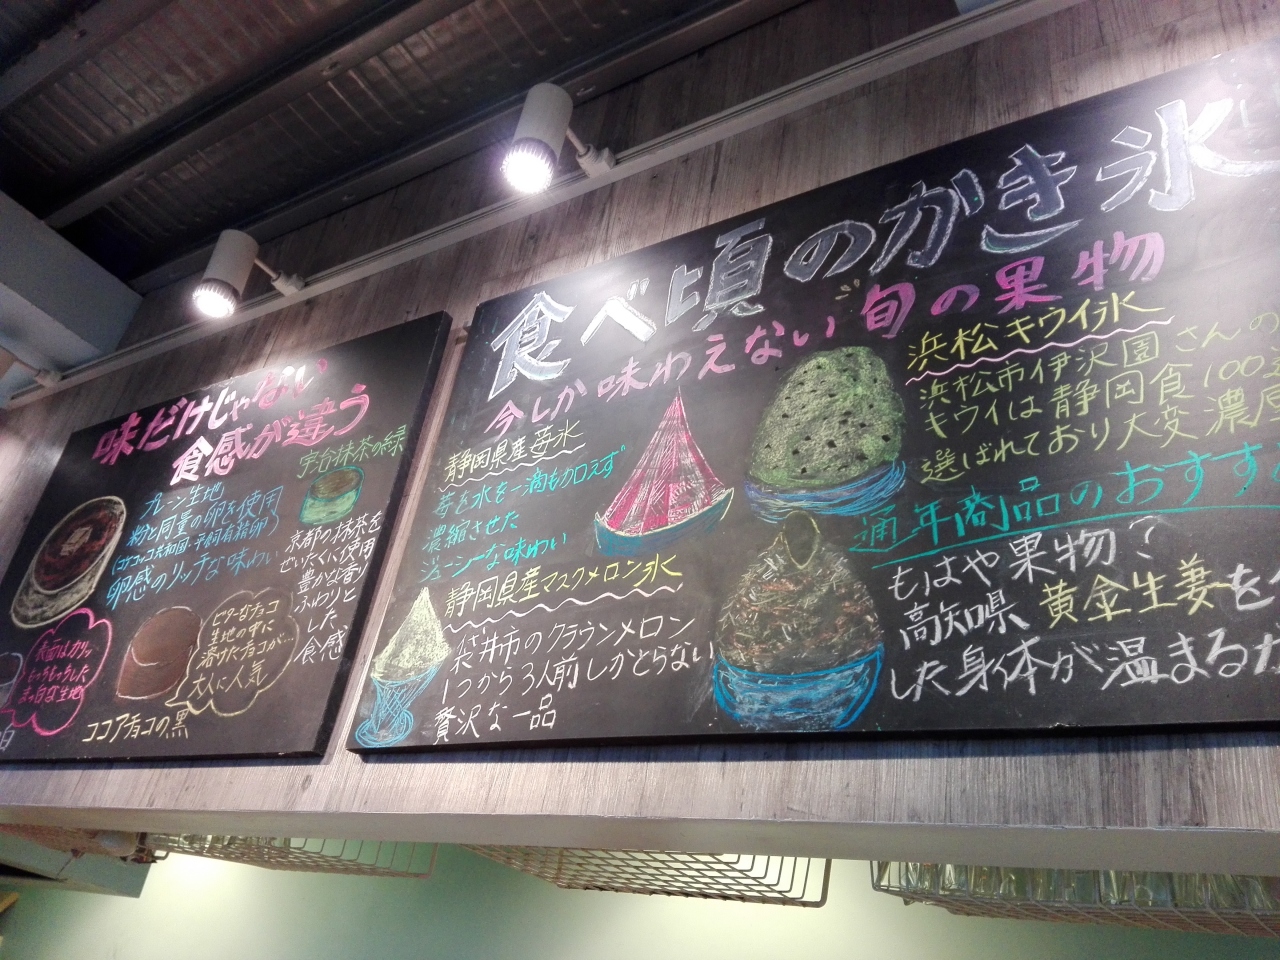 味だけじゃない
食感が違う
宇治抹茶の緑
プレーン生地
粉と同量の卵を使用
卵感のリッチな味わい
京都の抹茶を
ぜいたくに使用
豊かな香り
ふわりと
した
食感
ビターなチョコ
生地の中に
溶けたチョコが…
大人に人気
ココアチョコの黒
表面はカリッ
もっちりした
白
食べ頃のかき氷
今しか味わえない旬の果物
静岡県産苺氷
苺を水を一滴も加えず
濃縮させた
ジューシな味わい
静岡県産マスクメロン氷
袋井市のクラウンメロン
1つから3人前しかとらない
贅沢な一品
浜松キウイ氷
浜松市伊沢園さんの
キウイは静岡食100
選ばれており大変濃厚
通年商品のおすす
もはや果物?
高知県 黄金生姜を
した身体が温まる